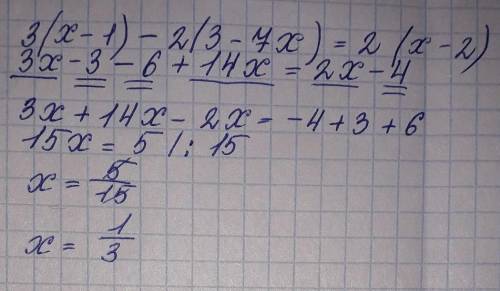 3(x-1) - 2(3-7x) = 2(x-2)
3x - 3 - 6 + 14x = 2x - 4
3x + 14x - 2x = -4 + 3 + 6
15x = 5 /: 15
x = 5/15
x = 1/3